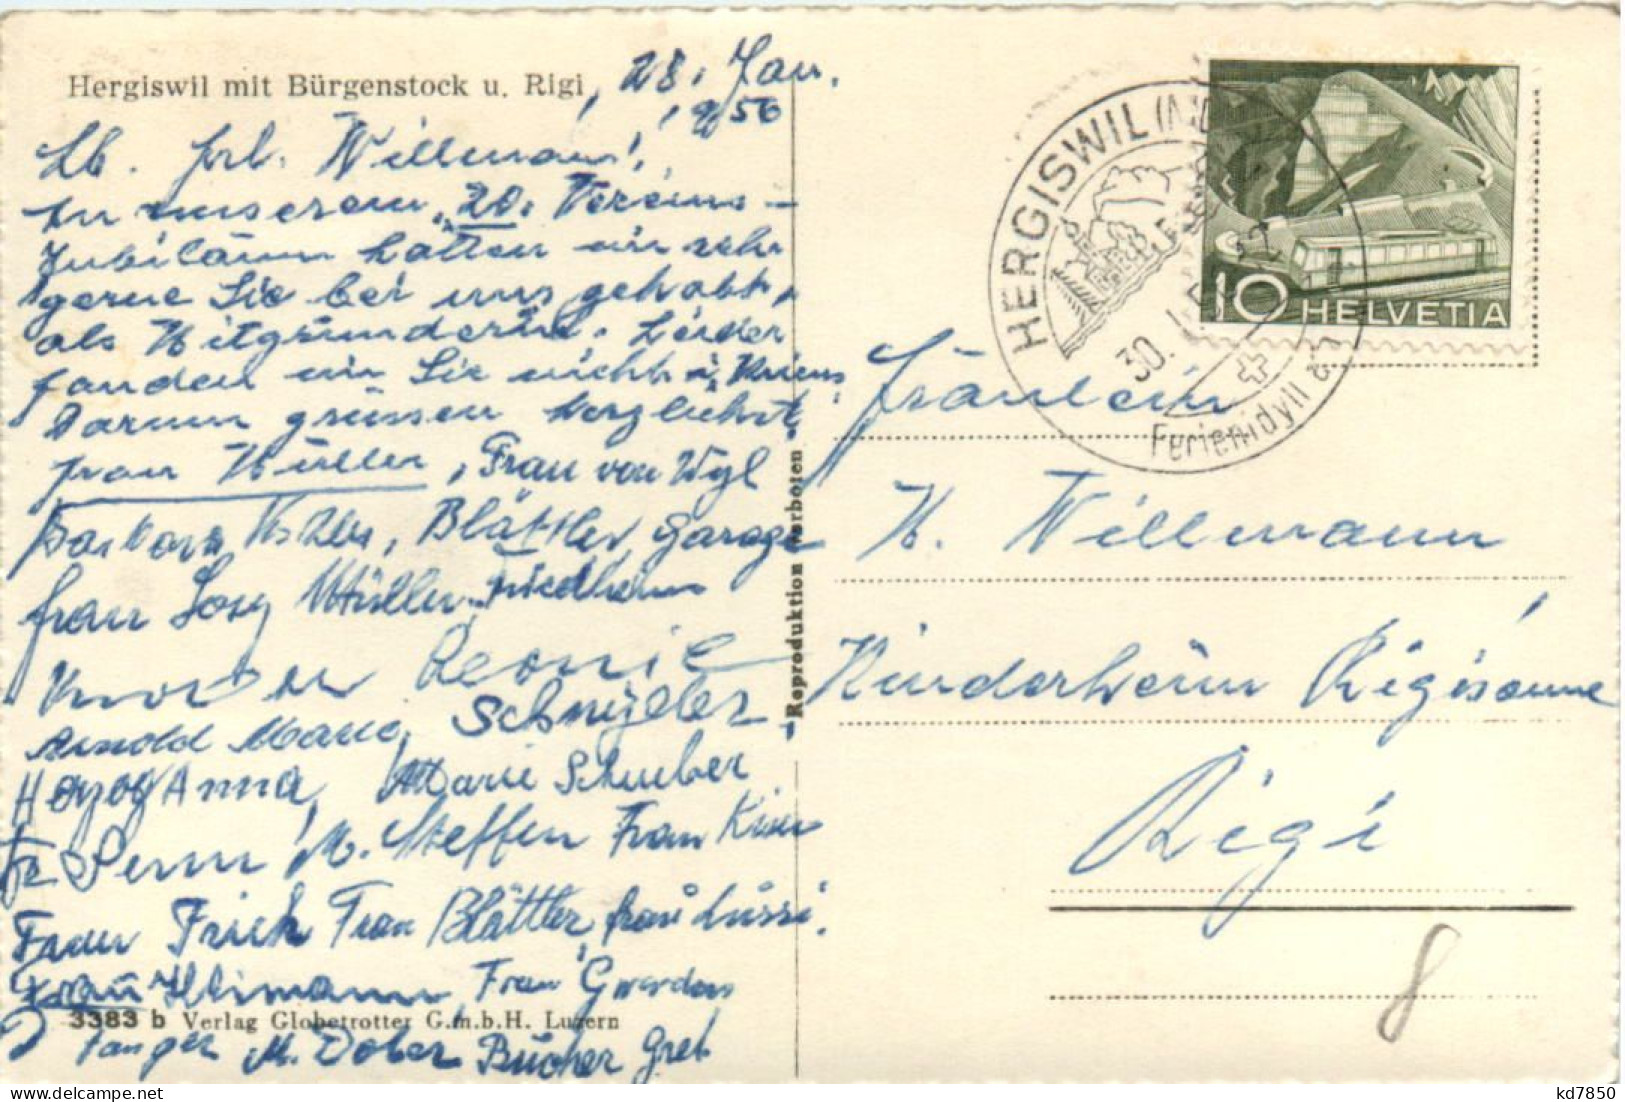 Hergiswil mit Bürgenstock u. Rigi, 28. Jan.
1956
Lb. Frl. Willmann!
An unserem 20. Vereins-
Jubiläum hatten wir sehr
gerne Sie bei uns gehabt,
als Mitgründerin. Leider
fanden wir Sie nicht i. Kriens.
Darum grüssen herzlichst
Frau Müller, Frau von Wyl
Barbara Blättler, Garage
Frau Josy Müller, Friedheim
Leonie
Arnold Marie, Schnyder
Herzog Anna, Marie Schuber
M. Steffen Frau
Frau Frick Frau Blättler, Frau Lussi.
Frau Frau
3383 b Verlag Globetrotter G.m.b.H. Luzern
M. Dober Bucher Gret
Reproduktion verboten
HERGISWIL (NW)
30. I.
Ferienidyll a
10 HELVETIA
Fräulein
M. Willmann
Kinderheim Rigisonne
Rigi
8
kd7850